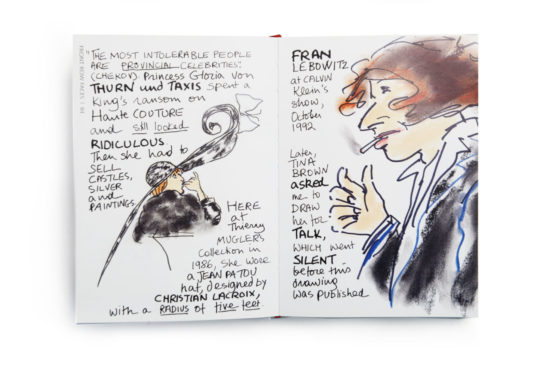 FRONT ROW FACES
"THE MOST INTOLERABLE PEOPLE
ARE PROVINCIAL CELEBRITIES."
(CHEKOV) Princess Gloria von
THURN und TAXIS spent a
King's ransom on
Haute COUTURE
and still looked
RIDICULOUS.
Then she had to
SELL
CASTLES,
SILVER
and
PAINTINGS
HERE
at
Thierry
MUGLER'S
Collection in
1986, she wore
a JEAN PATOU
hat, designed by
CHRISTIAN LACROIX,
with a RADIUS of five feet.
FRAN
LEBOWITZ
at CALVIN
Klein's
show,
October
1992
Later,
TINA
BROWN
asked
me to
DRAW
her for
TALK,
WHICH went
SILENT
before this
drawing
was published